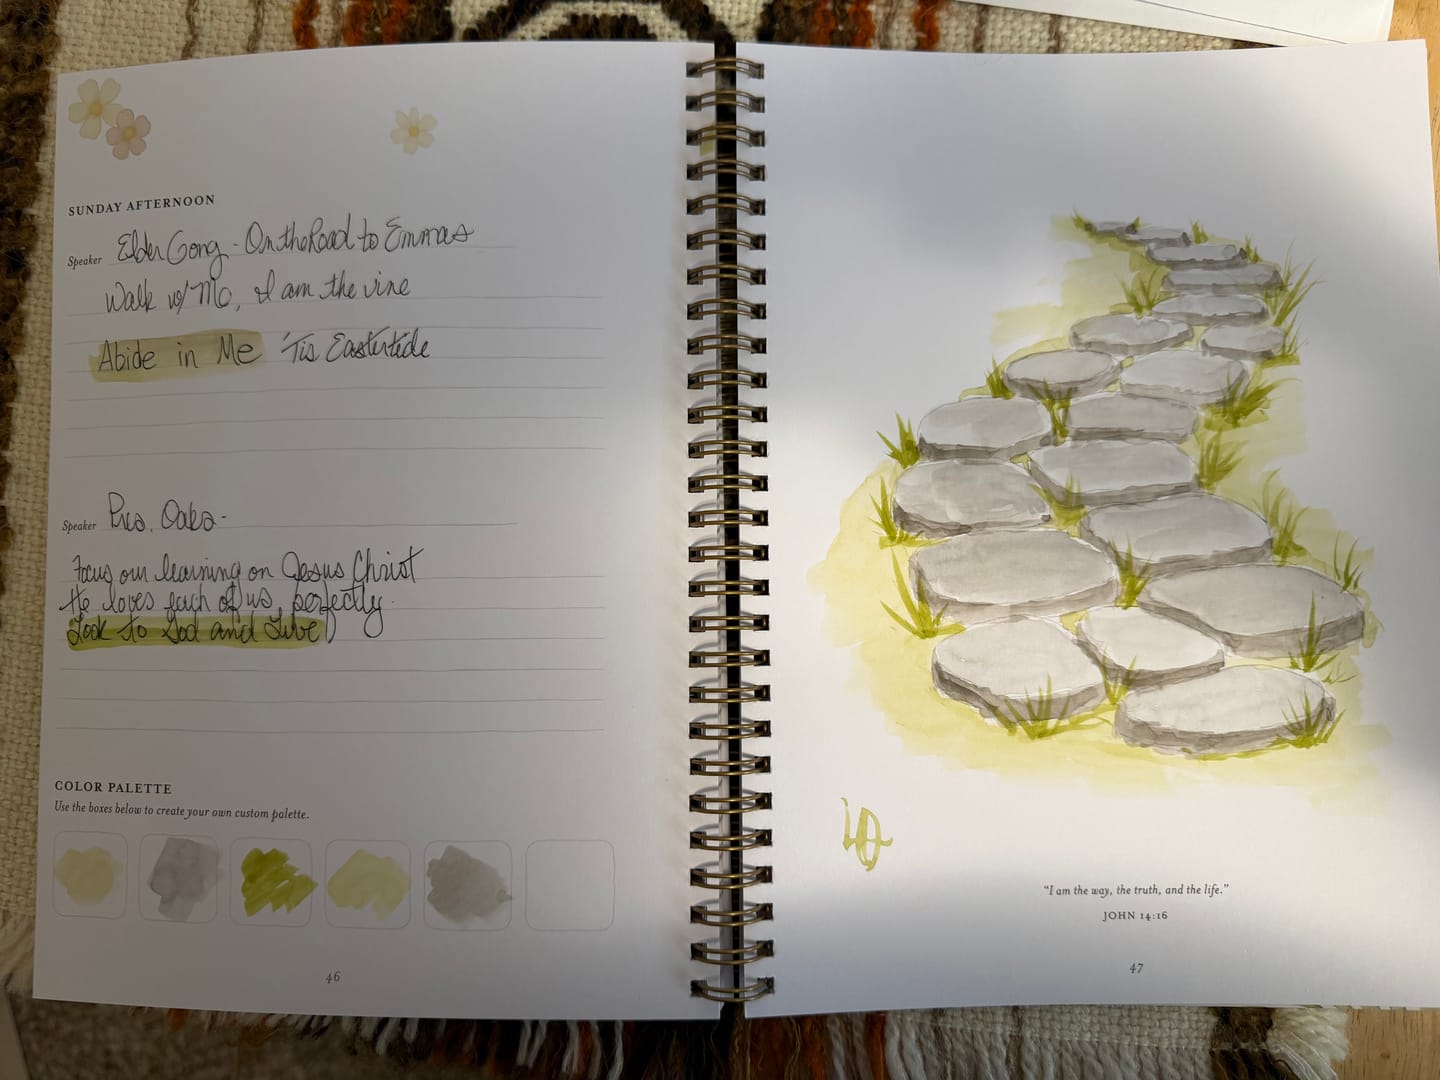 SUNDAY AFTERNOON
Speaker Elder Gong - On the Road to Emmas
Walk w/ Me, I am the vine
Abide in Me 'Tis Eastertide
Speaker Pres. Oaks -
Focus our learning on Jesus Christ
He loves each of us, perfectly.
Look to God and Live
COLOR PALETTE
Use the boxes below to create your own custom palette.
46
"I am the way, the truth, and the life."
JOHN 14:16
47